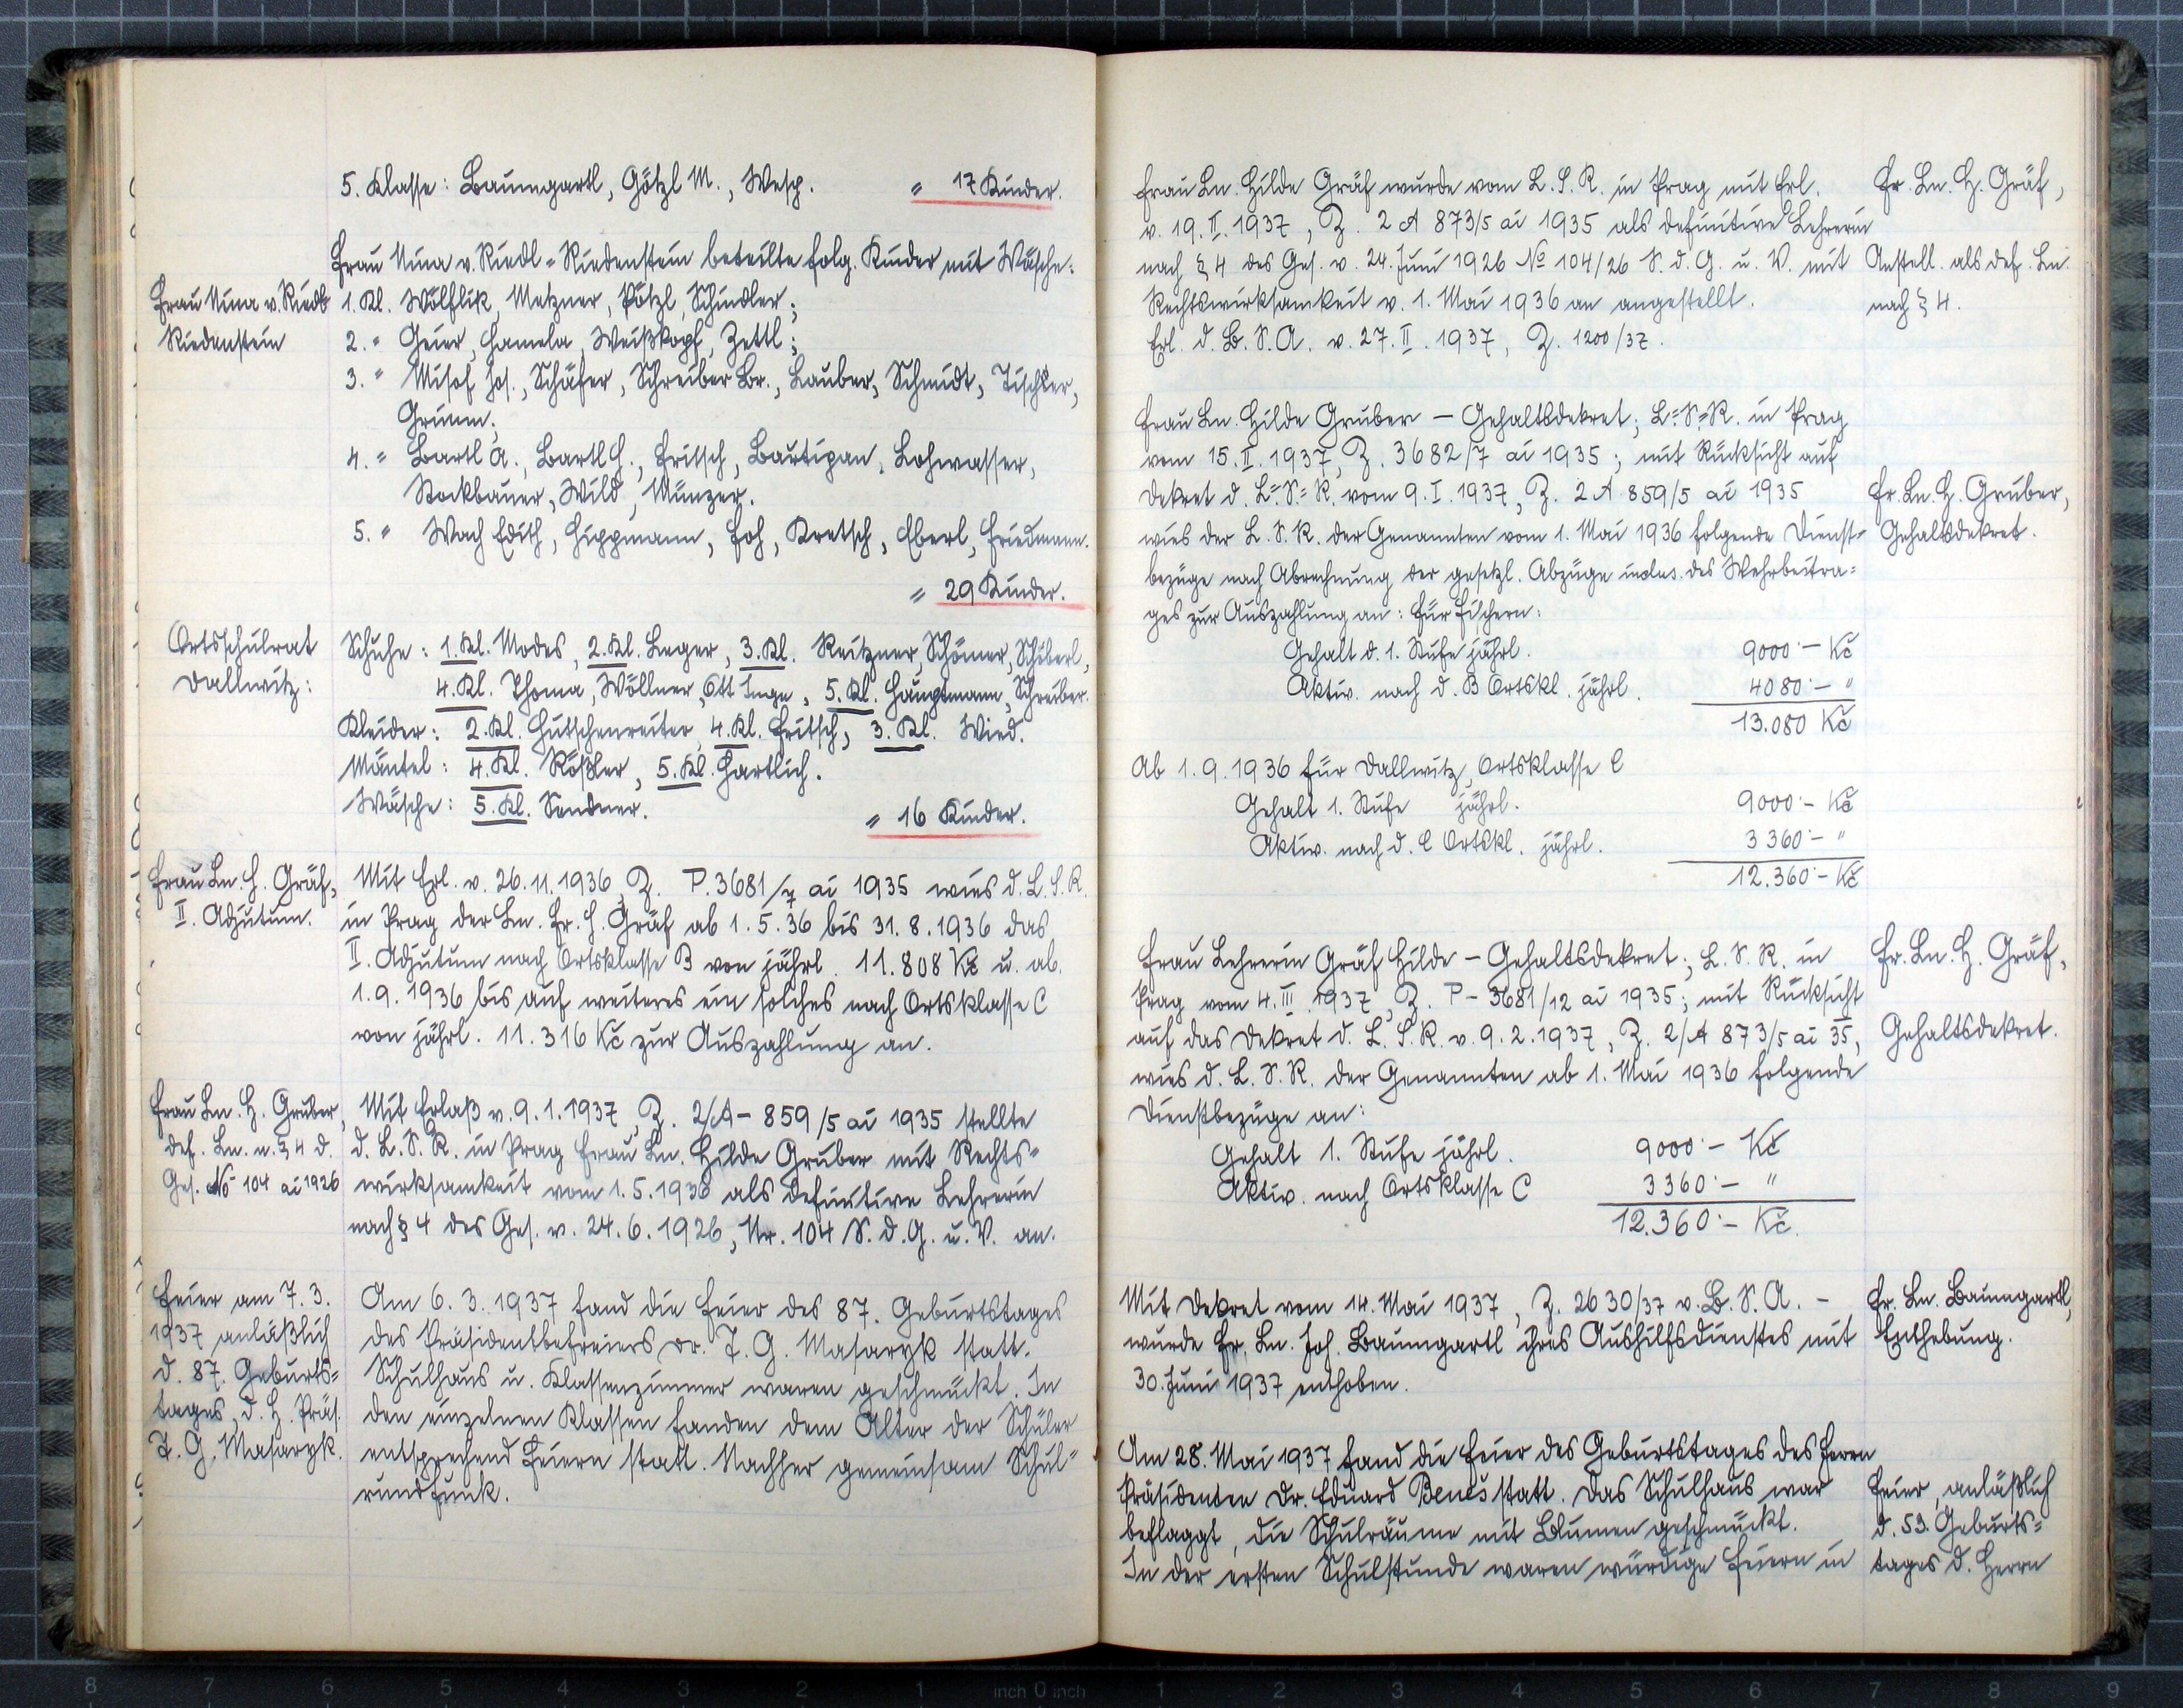 5. Klasse: Baumgartl, Götzl M., Wesp. = 17 Kinder.
Frau Nina v. Riedl-Riedenstein beteilte folg. Kinder mit Wäsche:
Frau Nina v. Riedl-
Riedenstein
1. Kl. Wölflik, Metzner, Pötzl, Schindler;
2. " Geier, Hamela, Weißkopf, Zettl;
3. " Misof Jos., Schäfer, Schreiber Br., Lauber, Schmidt, Tischler,
Grimm;
4. " Bartl A., Bartl H., Fritsch, Bautigan, Lohwasser,
Stockbauer, Wild, Münzer.
5. " Wach Edith, Hippmann, Hoh, Kretsch, Eberl, Friedmann.
= 29 Kinder.
Ortsschulrat
Dallwitz:
Schuhe: 1. Kl. Modes, 2. Kl. Leger, 3. Kl. Reitzner, Schömer, Schiberl,
4. Kl. Thoma, Wöllner, Ott Inge, 5. Kl. Hauptmann, Schreiber.
Kleider: 2. Kl. Hutschenreiter, 4. Kl. Fritsch, 3. Kl. Wied.
Mäntel: 4. Kl. Rößler, 5. Kl. Hartlich.
Wäsche: 5. Kl. Sandner.
= 16 Kinder.
Frau Ln. H. Gräf,
II. Adjutum.
Mit Erl. v. 26.11.1936, Z. P. 3681/7 ai 1935 wies d. L.S.R.
in Prag der Ln. Fr. H. Gräf ab 1.5.36 bis 31.8.1936 das
II. Adjutum nach Ortsklasse B von jährl. 11.808 Kč u. ab.
1.9.1936 bis auf weiteres ein solches nach Ortsklasse C
von jährl. 11.316 Kč zur Auszahlung an.
Frau Ln. H. Gruber,
def. Ln. n. § 4 d.
Ges. No 104 ai 1926
Mit Erlaß v. 9.1.1937, Z. 2/A - 859/5 ai 1935 stellte
d. L.S.R. in Prag Frau Ln. Hilde Gruber mit Rechts-
wirksamkeit vom 1.5.1936 als definitive Lehrerin
nach § 4 des Ges. v. 24.6.1926, Nr. 104 S. d. G. u. V. an.
Feier am 7.3.
1937 anläßlich
d. 87. Geburts-
tages d. H. Präs.
T. G. Masaryk.
Am 6.3.1937 fand die Feier des 87. Geburtstages
des Präsidentbefreiers Dr. T. G. Masaryk statt.
Schulhaus u. Klassenzimmer waren geschmückt. In
den einzelnen Klassen fanden dem Alter der Schüler
entsprechend Feiern statt. Nachher gemeinsam Schul-
rundfunk.
Frau Ln. Hilde Gräf wurde vom L.S.R. in Prag mit Erl.
v. 19.II.1937, Z. 2 A 873/5 ai 1935 als definitive Lehrerin
nach § 4 des Ges. v. 24. Juni 1926 No 104/26 S. d. G. u. V. mit
Rechtswirksamkeit v. 1. Mai 1936 an angestellt.
Erl. d. B.S.A. v. 27.II.1937, Z. 1200/37.
Fr. Ln. H. Gräf,
Anstell. als def. Ln.
nach § 4.
Frau Ln. Hilde Gruber – Gehaltsdekret; L.-S.-R. in Prag
vom 15.II.1937, Z. 3682/7 ai 1935; mit Rücksicht auf
Dekret d. L.-S.-R. vom 9.I.1937, Z. 2 A 859/5 ai 1935
wies der L.S.R. der Genannten vom 1. Mai 1936 folgende Dienst-
bezüge nach Abrechnung der gesetzl. Abzüge inclus. des Wehrbeitra-
ges zur Auszahlung an: Für Fischern:
Fr. Ln. H. Gruber,
Gehaltsdekret.
Gehalt d. 1. Stufe jährl. 9000·– Kč
Aktiv. nach d. B Ortskl. jährl. 4080·– "
13.080 Kč
Ab 1.9.1936 für Dallwitz, Ortsklasse C
Gehalt 1. Stufe jährl. 9000·– Kč
Aktiv. nach d. C Ortskl. jährl. 3360·– "
12.360·– Kč
Frau Lehrerin Gräf Hilde – Gehaltsdekret; L.S.R. in
Prag vom 4.III.1937, Z. P – 3681/12 ai 1935; mit Rücksicht
auf das Dekret d. L.S.R. v. 9.2.1937, Z. 2/A 873/5 ai 35,
wies d. L.S.R. der Genannten ab 1. Mai 1936 folgende
Dienstbezüge an:
Fr. Ln. H. Gräf,
Gehaltsdekret.
Gehalt 1. Stufe jährl. 9000·– Kč
Aktiv. nach Ortsklasse C 3360·– "
12.360·– Kč.
Mit Dekret vom 14. Mai 1937, Z. 2630/37 v. B.S.A. –
wurde Fr. Ln. Joh. Baumgartl ihres Aushilfsdienstes mit
30. Juni 1937 enthoben.
Fr. Ln. Baumgartl,
Enthebung.
Am 28. Mai 1937 fand die Feier des Geburtstages des Herrn
Präsidenten Dr. Eduard Beneš statt. Das Schulhaus war
beflaggt, die Schulräume mit Blumen geschmückt.
In der ersten Schulstunde waren würdige Feiern in
Feier, anläßlich
d. 53. Geburts-
tages d. Herrn
8 7 6 5 4 3 2 1 inch 0 inch 1 2 3 4 5 6 7 8 9